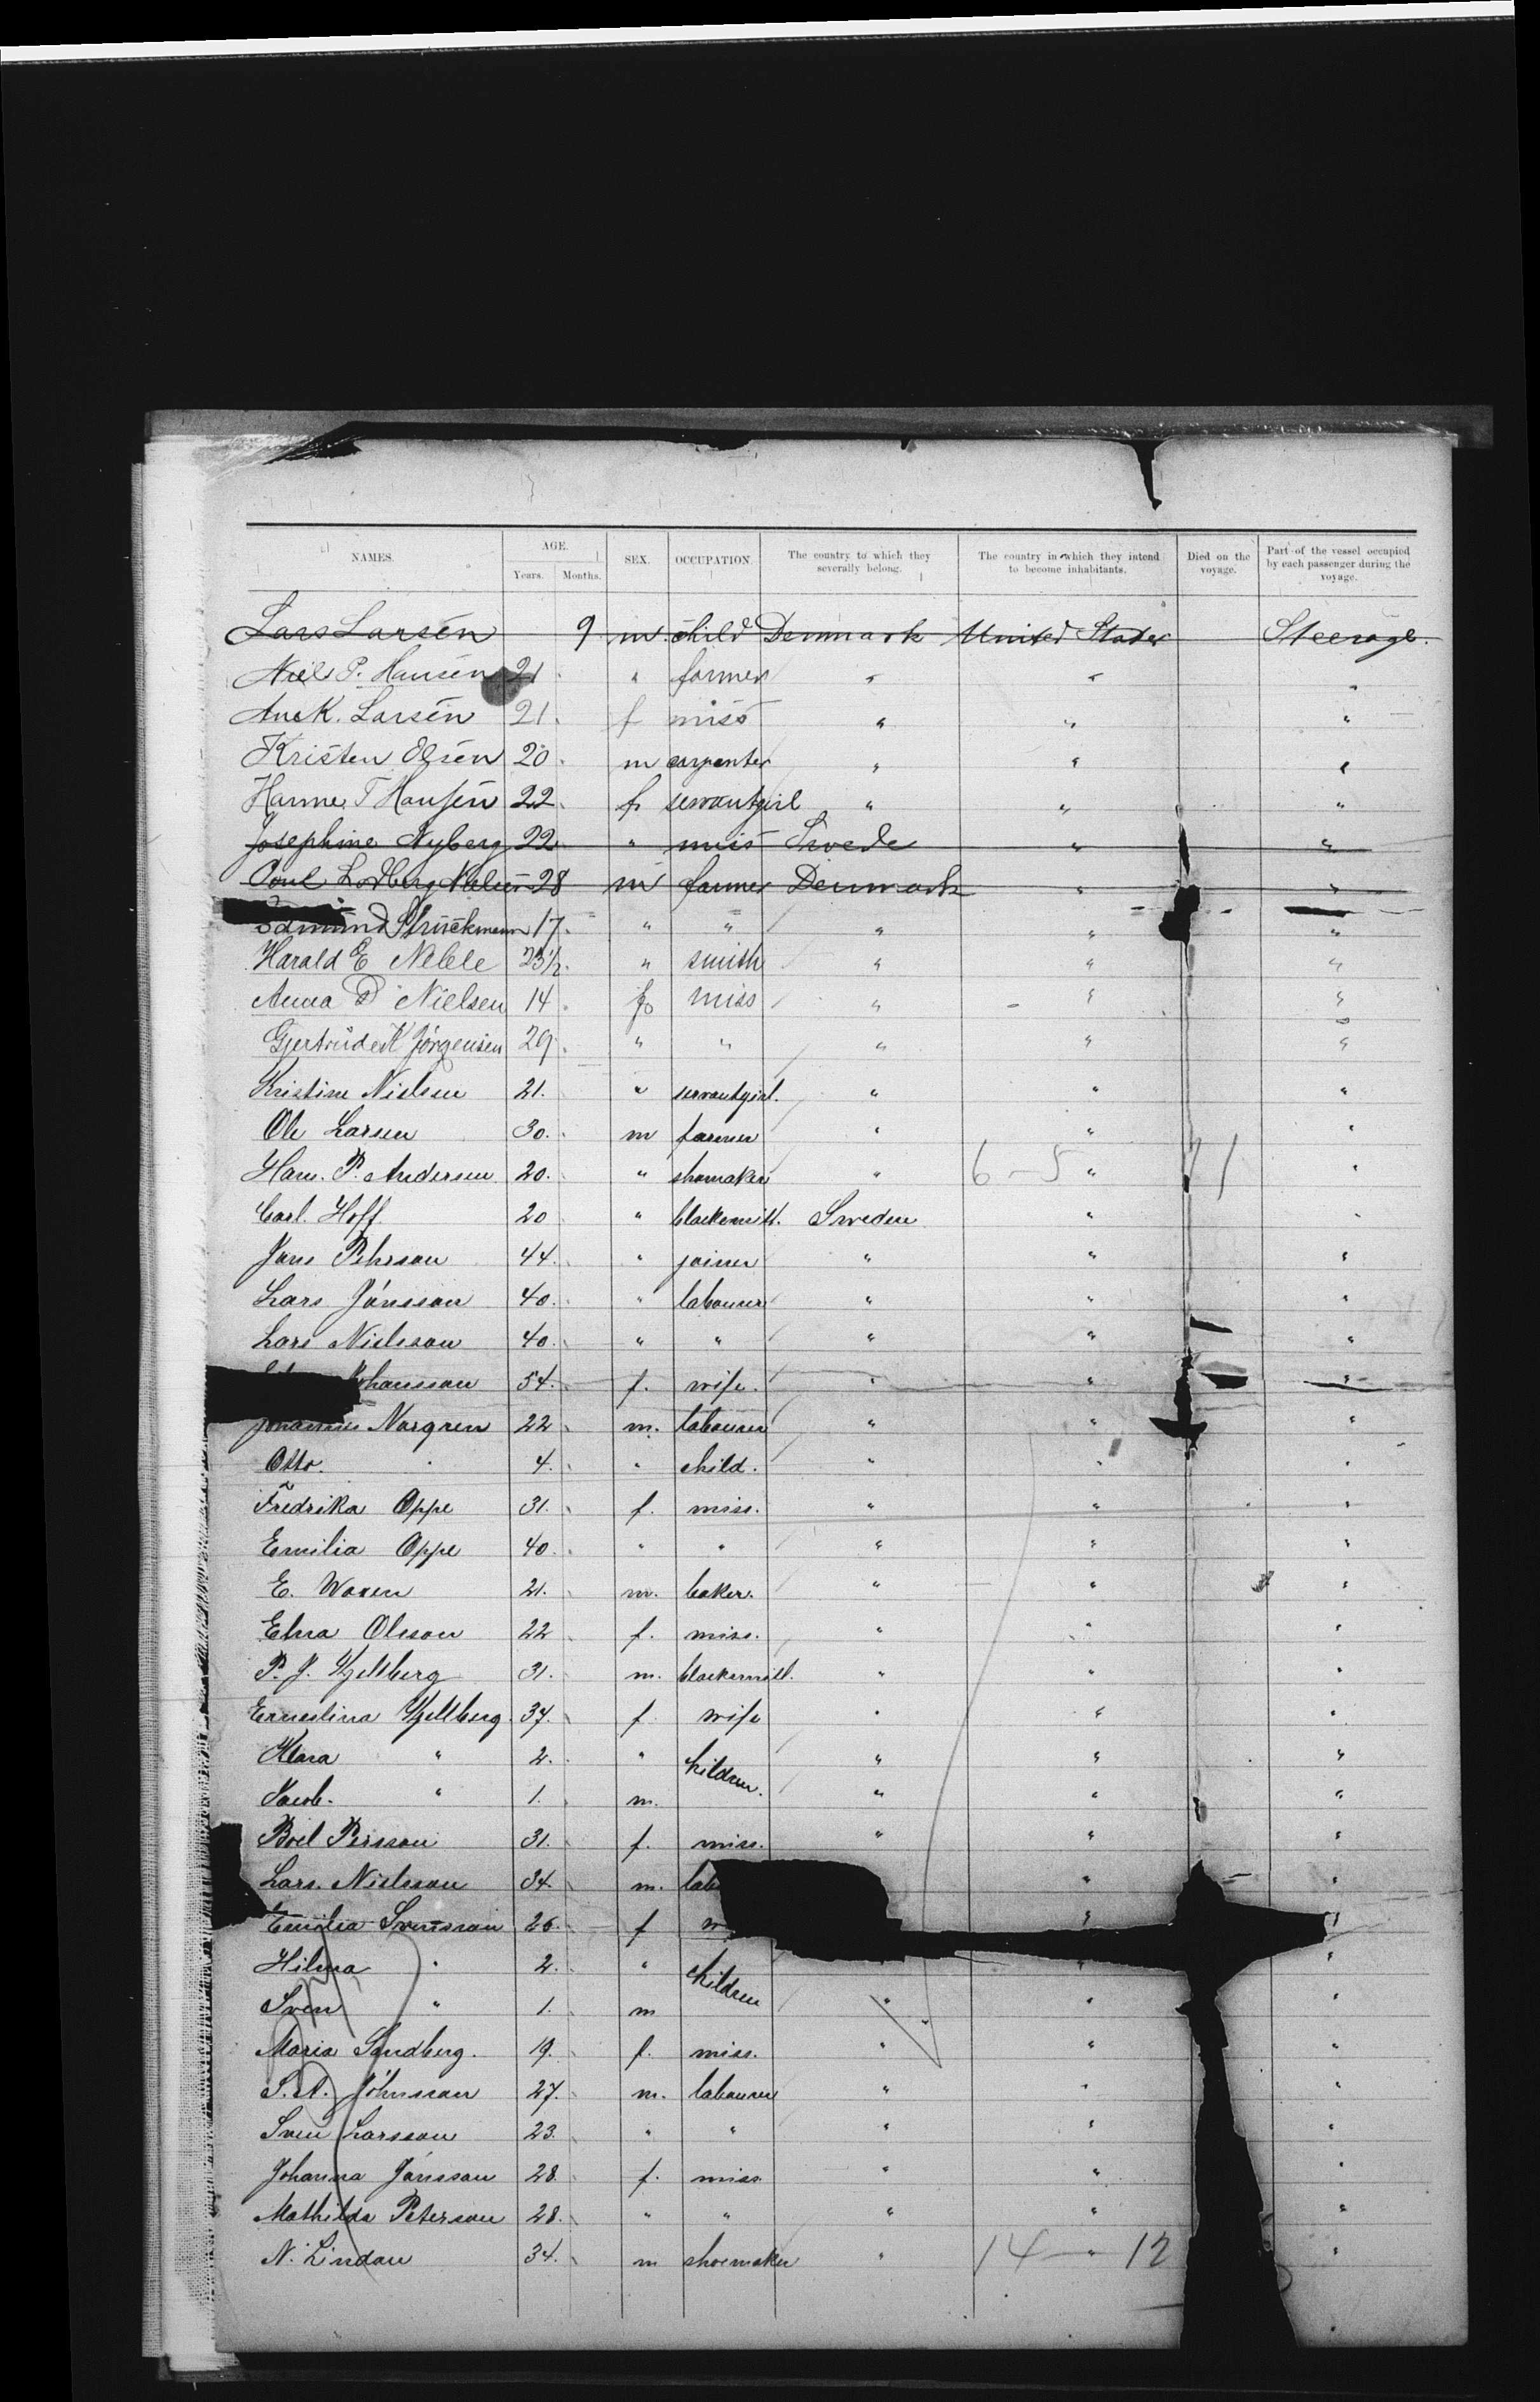 NAMES. AGE. SEX. OCCUPATION. The country to which they severally belong. The country in which they intend to become inhabitants. Died on the voyage. Part of the vessel occupied by each passenger during the voyage.
Years. Months.
Lars Larsen 9 m child Denmark United States Steerage.
Niels P. Hansen 21 " farmer " " "
Ane K. Larsen 21. f miss " " "
Kristen Olsen 20 m carpenter " " "
Hanne T Hansen 22 f servantgirl " " "
Josephine Nyberg 22 " miss Swede " "
Poul Lodberg Nielsen 28 m farmer Denmark " "
Edmund Struckmann 17. " " " " "
Harald E 23½ " smith " " "
Anna D Nielsen 14 f miss " " "
Gjertrude K Jörgensen 29 " " " " "
Kristine Nielsen 21. " servantgirl. " " "
Ole Larsen 30. m farmer " " "
Hans. P. Andersen 20. " shomaker " 6-5 " 11 "
Carl. Hoff 20 " blacksmith. Sweden " "
Jöns Pehrson 44. " joiner " " "
Lars Jönsson 40. " labourer " " "
Lars Nielsson 40. " " " " "
Johansson 54. f. wife. " " "
Johannes Norgren 22 m. labourer " " "
Otto. " 4. " child. " " "
Fredrika Oppe 31. f. miss. " " "
Emilia Oppe 40. " " " " "
E. 21. m. baker. " " "
Elna Olsson 22 f. miss. " " "
P. J. Kjellberg 31. m. blacksmith. " " "
Ernestina Kjellberg. 37. f wife " " "
Klara " 2. " children. " " "
Jacob. " 1. m. " " "
Boel Persson 31. f. miss. " " "
Lars. Nielsson 34. m. lab " "
Emilia Svensson 26. f w " "
Hilma " 2. " children " " "
Sven " 1. m " " "
Maria Sandberg. 19. f. miss. " " "
S. A. Johnsson 27. m. labourer " " "
Sven Larsson 23. " " " " "
Johanna Jönsson 28. f. miss " " "
Mathilda Peterson 28. " " " " "
N. Lindau 34. m shoemaker " 14 " 12 "